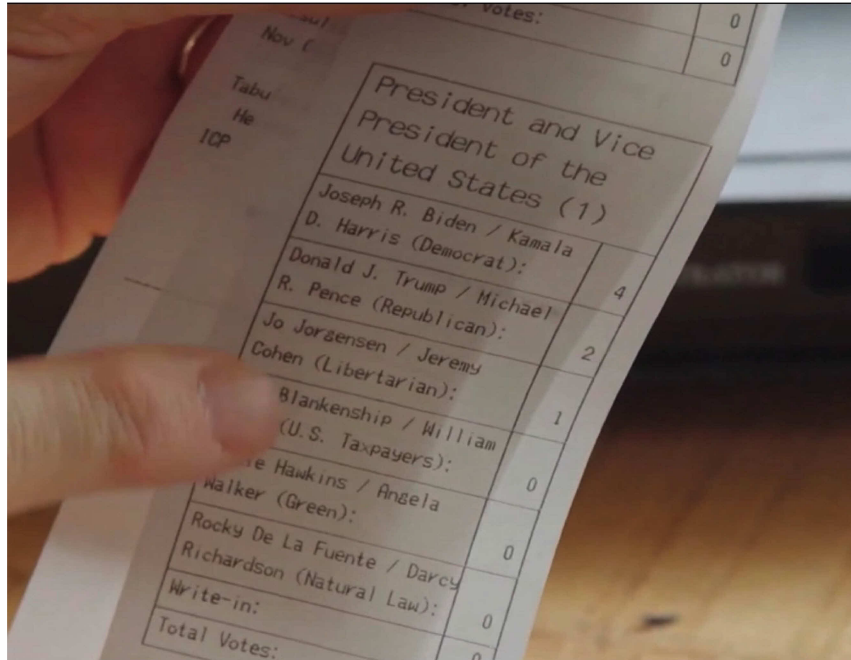 Votes:
0
0
Nov
Tabu
He
ICP
President and Vice
President of the
United States (1)
Joseph R. Biden / Kamala
D. Harris (Democrat):
4
Donald J. Trump / Michael
R. Pence (Republican):
2
Jo Jorgensen / Jeremy
Cohen (Libertarian):
1
Blankenship / William
(U.S. Taxpayers):
0
Hawkins / Angela
Walker (Green):
0
Rocky De La Fuente / Darcy
Richardson (Natural Law):
0
Write-in:
0
Total Votes: